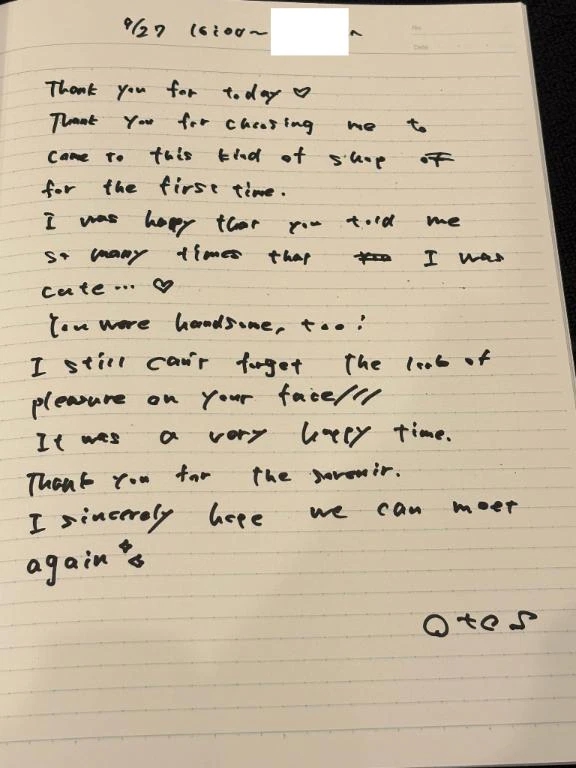 9/27 16:00~
Thank you for today ♡
Thank you for choosing me to
come to this kind of shop of
for the first time.
I was happy that you told me
so many times that I was
cute... ♡
You were handsome, too!
I still can't forget the look of
pleasure on your face///
It was a very happy time.
Thank you for the suvenir.
I sincerely hope we can meet
again